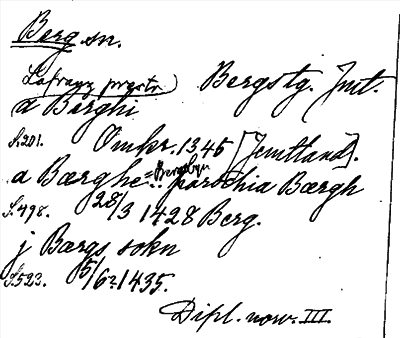 Berg sn.
Bergstg. Jmt.
(Lafranz prestr)
a Bærghi
S. 201. Omkr. 1345 [Jemtland].
a Bærghe = Bergbyn parochia Bærgh
S. 498. 28/3 1428 Berg.
j Bærgs sokn
S. 523. 5/6 1435.
Dipl. norv. III.